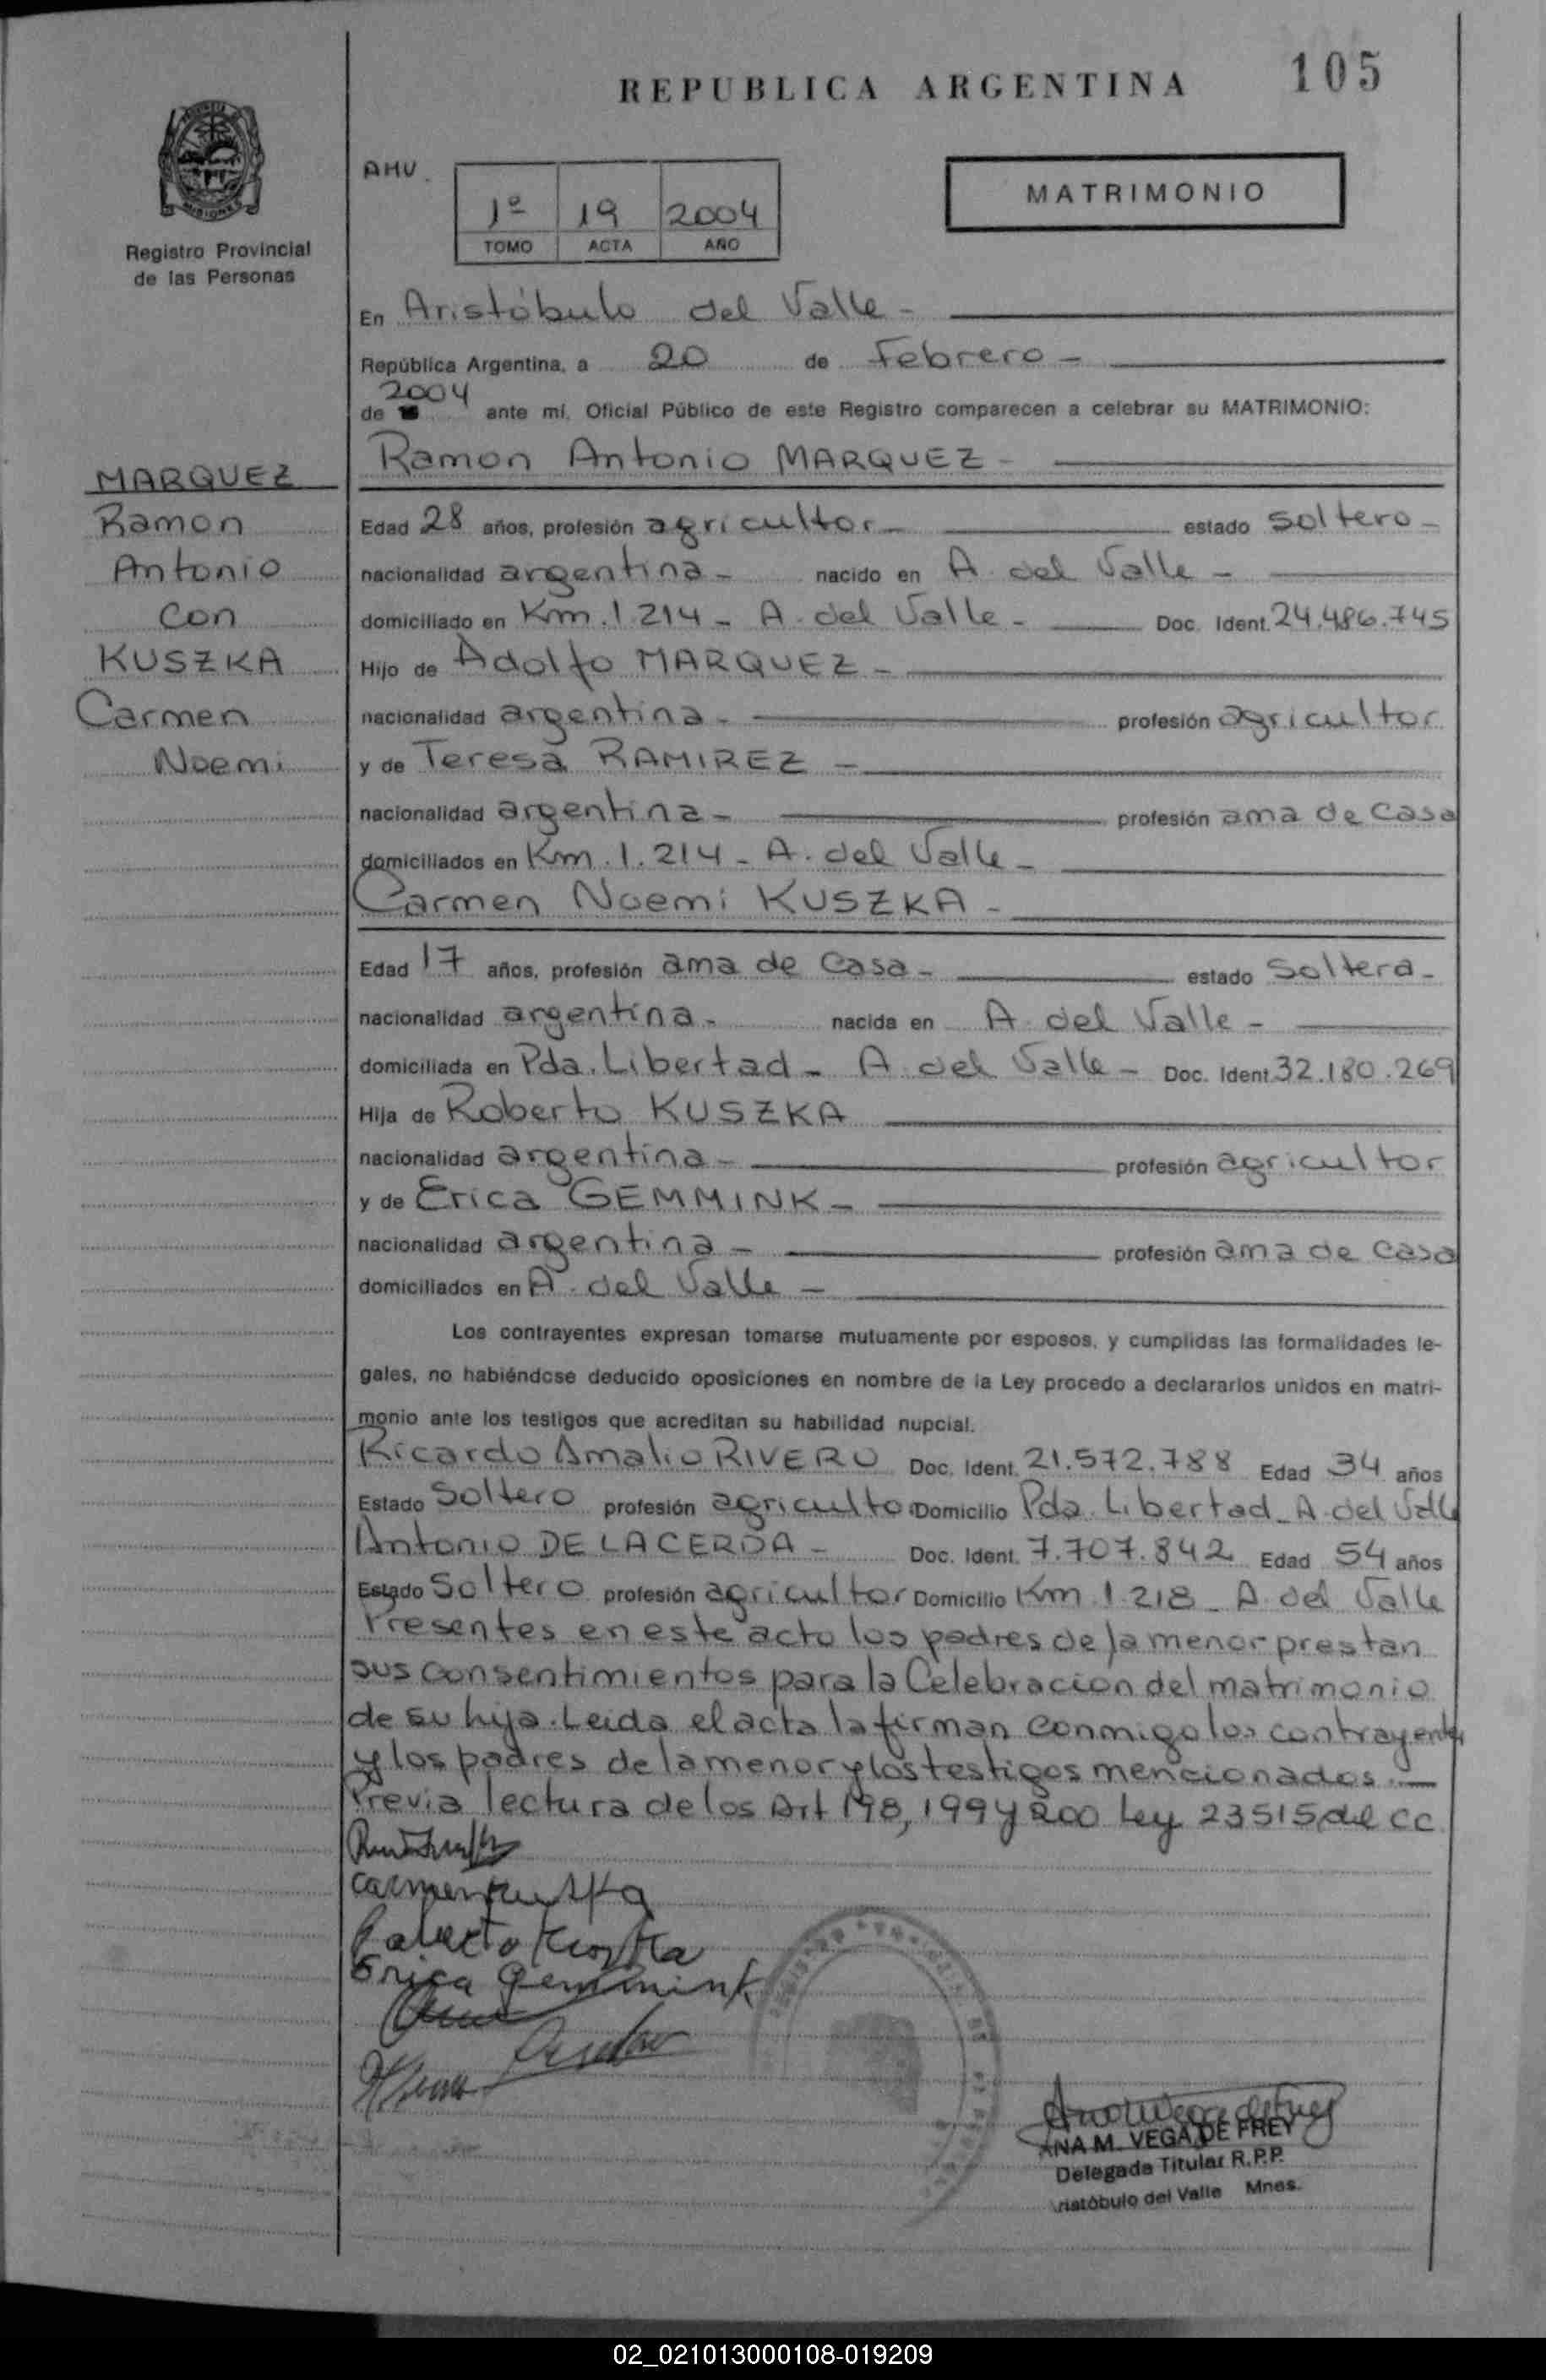 REPUBLICA ARGENTINA 105
MISIONES
Registro Provincial
de las Personas
AMV.
1º 19 2004
TOMO ACTA AÑO
MATRIMONIO
En Aristóbulo del Valle -
República Argentina, a 20 de Febrero -
2004
de ante mí, Oficial Público de este Registro comparecen a celebrar su MATRIMONIO:
MARQUEZ
Ramon
Antonio
con
KUSZKA
Carmen
Noemi
Ramon Antonio MARQUEZ -
Edad 28 años, profesión agricultor - estado soltero -
nacionalidad argentina - nacido en A. del Valle -
domiciliado en Km. 1.214 - A. del Valle - Doc. Ident. 24.486.745
Hijo de Adolfo MARQUEZ -
nacionalidad argentina - profesión agricultor
y de Teresa RAMIREZ -
nacionalidad argentina - profesión ama de casa
domiciliados en Km. 1.214 - A. del Valle -
Carmen Noemi KUSZKA -
Edad 17 años, profesión ama de casa - estado soltera -
nacionalidad argentina - nacida en A. del Valle -
domiciliada en Pda. Libertad - A. del Valle - Doc. Ident. 32.180.269
Hija de Roberto KUSZKA
nacionalidad argentina - profesión agricultor
y de Erica GEMMINK -
nacionalidad argentina - profesión ama de casa
domiciliados en A. del Valle -
Los contrayentes expresan tomarse mutuamente por esposos, y cumplidas las formalidades le-
gales, no habiéndose deducido oposiciones en nombre de la Ley procedo a declararlos unidos en matri-
monio ante los testigos que acreditan su habilidad nupcial.
Ricardo Amalio RIVERO Doc. Ident. 21.572.788 Edad 34 años
Estado Soltero profesión agriculto Domicilio Pda. Libertad - A. del Valle
Antonio DE LACERDA - Doc. Ident. 7.707.842 Edad 54 años
Estado Soltero profesión agricultor Domicilio Km 1.218 - A. del Valle
Presentes en este acto los padres de la menor prestan
sus consentimientos para la Celebracion del matrimonio
de su hija. Leida el acta la firman conmigo los contrayentes
y los padres de la menor y los testigos mencionados. —
Previa lectura de los Art 198, 199 y 200 Ley 23515 del CC.
Carmen Kuszka
Roberto Kuszka
Erica Gemmink
ANA M. VEGA DE FREY
Delegada Titular R.P.P.
ristóbulo del Valle Mnes.
02_021013000108-019209